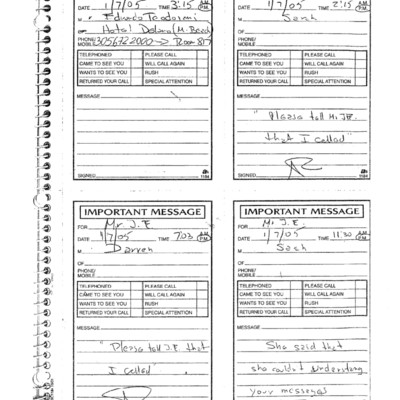 DATE 1/7/05 TIME 3:15 A.M. P.M.
M r Eduardo Teodorani
OF Hotel Delano (M. Beach)
PHONE/ MOBILE 305 672 2000 → Room 817
TELEPHONED PLEASE CALL
CAME TO SEE YOU WILL CALL AGAIN
WANTS TO SEE YOU RUSH
RETURNED YOUR CALL SPECIAL ATTENTION
MESSAGE
SIGNED 1184
DATE 1/7/05 TIME 2:15 A.M. P.M.
M Sesh
OF
PHONE/ MOBILE
TELEPHONED PLEASE CALL
CAME TO SEE YOU WILL CALL AGAIN
WANTS TO SEE YOU RUSH
RETURNED YOUR CALL SPECIAL ATTENTION
MESSAGE
"Please tell Mr. J.E.
that I called"
SIGNED 1184
IMPORTANT MESSAGE
FOR Mr J.E.
DATE 1/7/05 TIME 7:03 A.M. P.M.
M Darren
OF
PHONE/ MOBILE
TELEPHONED PLEASE CALL
CAME TO SEE YOU WILL CALL AGAIN
WANTS TO SEE YOU RUSH
RETURNED YOUR CALL SPECIAL ATTENTION
MESSAGE
"Please tell J.E. that
I called"
IMPORTANT MESSAGE
FOR Mr. J.E.
DATE 1/7/05 TIME 11:30 A.M. P.M.
M Sesh
OF
PHONE/ MOBILE
TELEPHONED PLEASE CALL
CAME TO SEE YOU WILL CALL AGAIN
WANTS TO SEE YOU RUSH
RETURNED YOUR CALL SPECIAL ATTENTION
MESSAGE
She said that
she couldn't understand
your messages